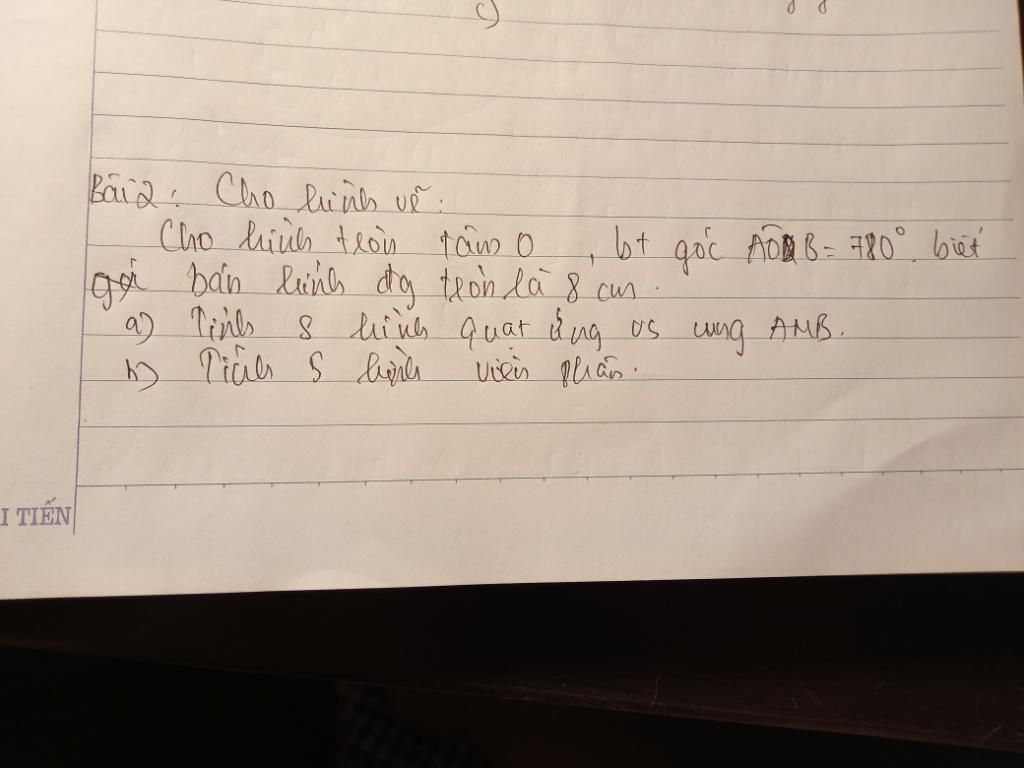 c)
Bài 2: Cho hình vẽ:
Cho hình tròn tâm O , bt góc AOB = 780°. biết
bán kính đg tròn là 8 cm.
a) Tính S hình quạt ứng vs cung AMB.
b) Tính S hình viên phân.
I TIẾN